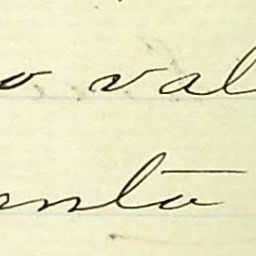 o val
nto